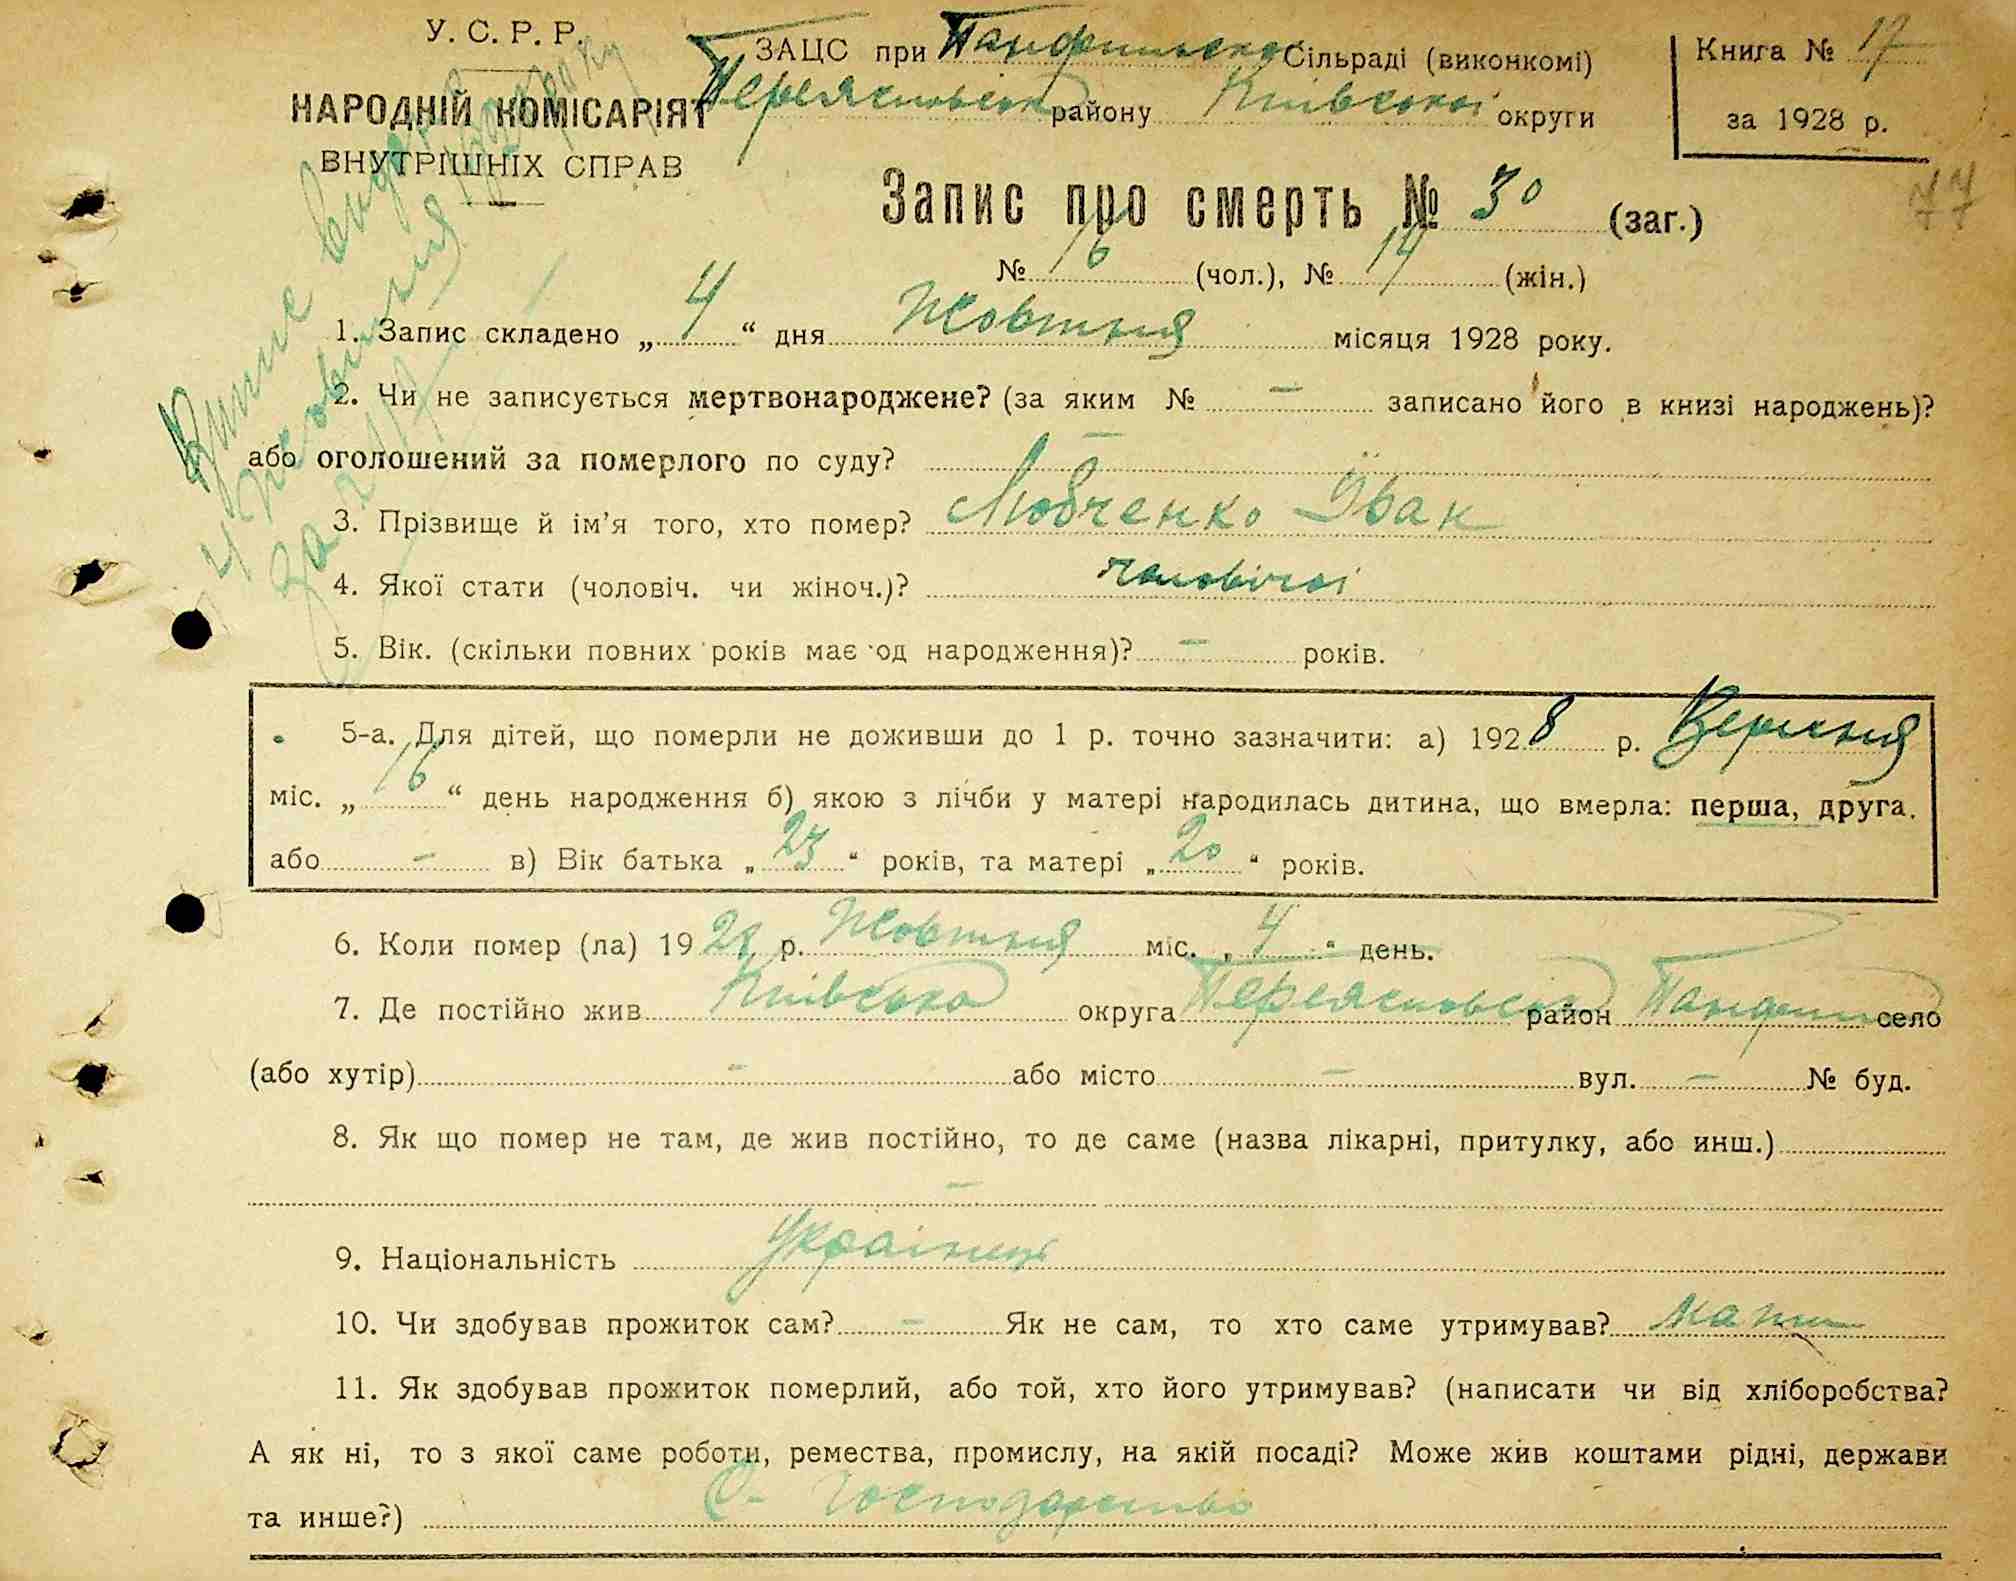 У. С. Р. Р.
НАРОДНІЙ КОМІСАРІЯТ
ВНУТРІШНІХ СПРАВ
ЗАЦС при Панфильской Сільраді (виконкомі)
Переяславськ району Київської округи
Книга № 17
за 1928 р.
77
Запис про смерть № 30 (заг.)
№ 16 (чол.), № 14 (жін.)
Випис видано
4 жовтня 1928 року
за №
1. Запис складено „ 4 “ дня Жовтня місяця 1928 року.
2. Чи не записується мертвонароджене? (за яким № – записано його в книзі народжень)?
або оголошений за померлого по суду? –
3. Прізвище й ім'я того, хто помер? Любченко Іван
4. Якої стати (чоловіч. чи жіноч.)? чоловічої
5. Вік. (скільки повних років має од народження)? – років.
5-а. Для дітей, що померли не доживши до 1 р. точно зазначити: а) 1928 р. Вересня
міс. „ 16 “ день народження б) якою з лічби у матері народилась дитина, що вмерла: перша, друга.
або – в) Вік батька „ 23 “ років, та матері „ 20 “ років.
6. Коли помер (ла) 1928 р. Жовтня міс. „ 4 “ день.
7. Де постійно жив Київська округа Переясловськ район Панфили село
(або хутір) – або місто – вул. – № буд.
8. Як що помер не там, де жив постійно, то де саме (назва лікарні, притулку, або инш.)
–
9. Національність Українець
10. Чи здобував прожиток сам? – Як не сам, то хто саме утримував? мати
11. Як здобував прожиток померлий, або той, хто його утримував? (написати чи від хліборобства?
А як ні, то з якої саме роботи, ремества, промислу, на якій посаді? Може жив коштами рідні, держави
та инше?) С- Господарство